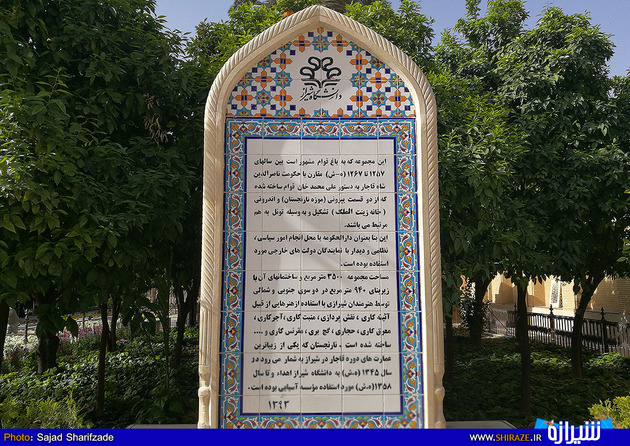 دانشگاه شیراز
این مجموعه که به باغ قوام مشهور است بین سالهای
۱۲۵۷ تا ۱۲۶۷ (ه-ش) مقارن با حکومت ناصرالدین
شاه قاجار به دستور علی محمد خان قوام ساخته شده
که از دو قسمت بیرونی (موزه نارنجستان) و اندرونی
(خانه زینت الملک) تشکیل و به وسیله تونل به هم
مرتبط می باشند.
این بنا بعنوان دارالحکومه یا محل انجام امور سیاسی،
نظامی و دیدار با نمایندگان دولت های خارجی مورد
استفاده بوده است.
مساحت مجموعه ۳۵۰۰ متر مربع و ساختمانهای آن با
زیربنای ۹۴۰ متر مربع در دو سوی جنوبی و شمالی
توسط هنرمندان شیرازی با استفاده از هنرهایی از قبیل
آئینه کاری، نقش پردازی، منبت کاری، آجرکاری،
معرق کاری، حجاری، گچ بری، مقرنس کاری و ....
ساخته شده است. نارنجستان که یکی از زیباترین
عمارت های دوره قاجار در شیراز به شمار می رود در
سال ۱۳۴۵ (ه.ش) به دانشگاه شیراز اهداء و تا سال
۱۳۵۸ (ه.ش) مورد استفاده مؤسسه آسیایی بوده است.
۱۳۹۳
Photo: Sajad Sharifzade
WWW.SHIRAZE.IR
شیرازه